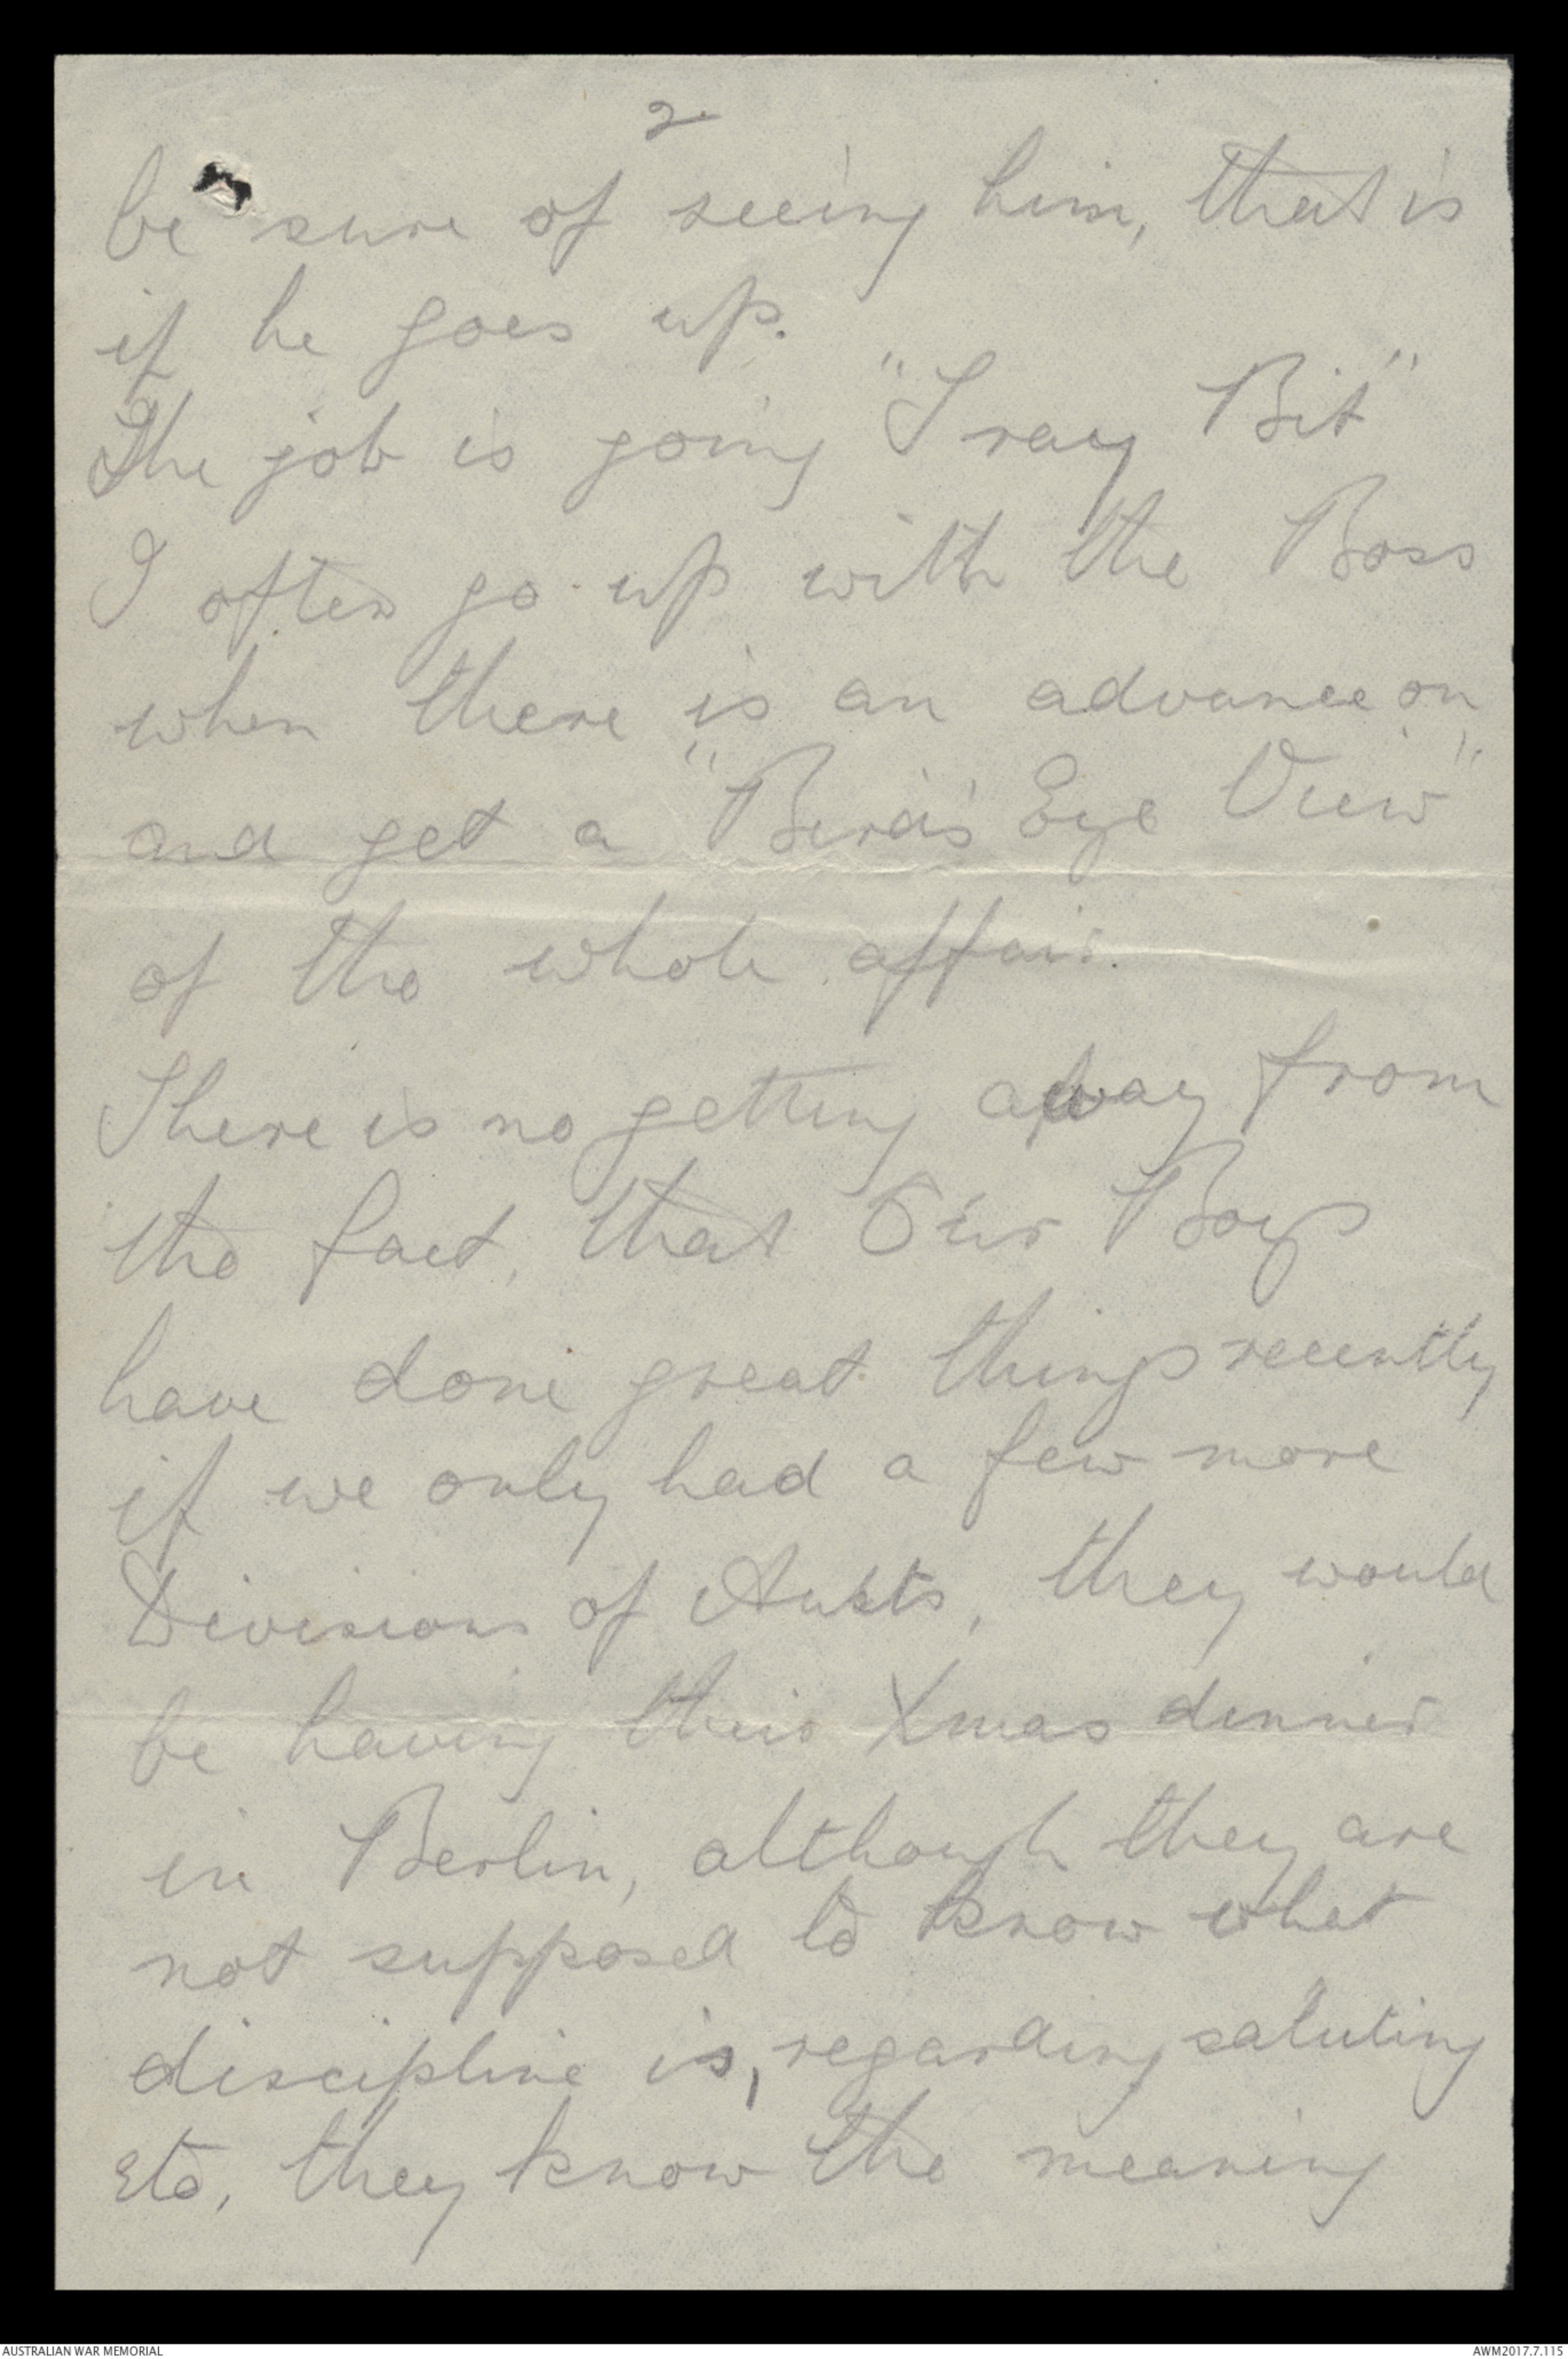 2.
be sure of seeing him, that is
if he goes up.
The job is going "Tray Bit"
I often go up with the Boss
when there is an advance on
and get a "Bird's Eye View"
of the whole affair.
There is no getting away from
the fact, that Our Boys
have done great things recently
if we only had a few more
Divisions of Austs, they would
be having their Xmas dinner
in Berlin, although they are
not supposed to know what
discipline is, regarding saluting
etc, they know the meaning
AUSTRALIAN WAR MEMORIAL
AWM2017.7.115